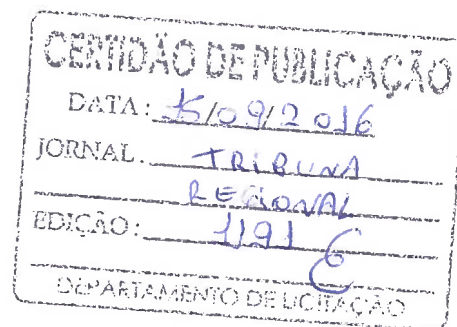 CERTIDÃO DE PUBLICAÇÃO
DATA: 15/09/2016
JORNAL. TRIBUNA
REGIONAL
EDIÇÃO: 1191
DEPARTAMENTO DE LICITAÇÃO